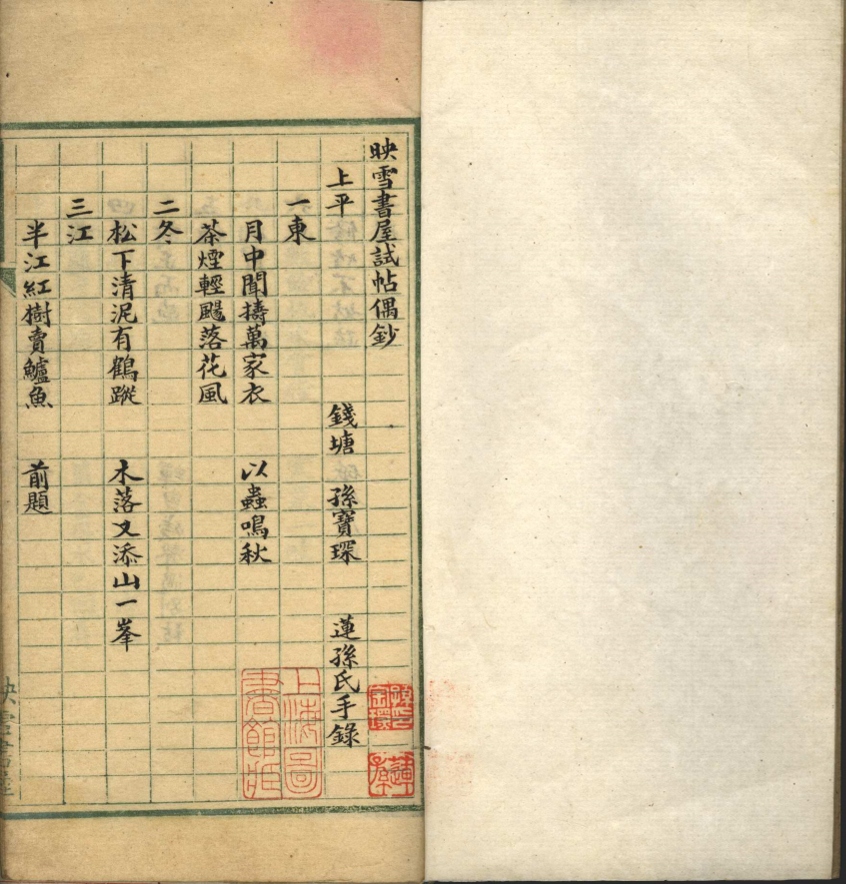 映雪書屋試帖偶鈔
上平 錢塘 孫寶琛 蓮孫氏手錄
一東
月中聞擣萬家衣 以蟲鳴秋
茶煙輕颺落花風
二冬
松下清泥有鶴蹤 木落又添山一峯
三江
半江紅樹賣鱸魚 前題
上海圖
書館藏
映雪書屋